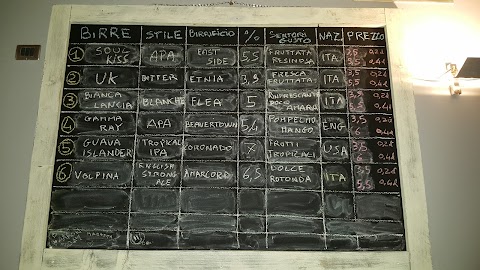 BIRRE STILE BIRRIFICIO % SENTORI GUSTO NAZ. PREZZO
1 SOUL KISS APA EAST SIDE 5,5 FRUTTATA RESINOSA ITA 3,5 0,2d 0,4d
2 UK BITTER ETNIA FRESCA FRUTTATA ITA 0,2d 0,4d
3 BIANCA LANCIA BLANCHE ELEA 5 RINFRESCANTE POCO AMARA ITA 0,2d 0,4d
4 GAMMA RAY APA BEAVERTOWN 5,4 POMPELMO MANGO ENG 0,2d 6 0,4d
5 GUAVA ISLANDER TROPICAL IPA CORONADO 7 FRUTTI TROPICALI USA 0,2d 6 0,4d
6 VOLPINA ENGLISH STRONG ALE AMARCORD 6,5 DOLCE ROTONDA ITA 0,2d 5,5 0,4d